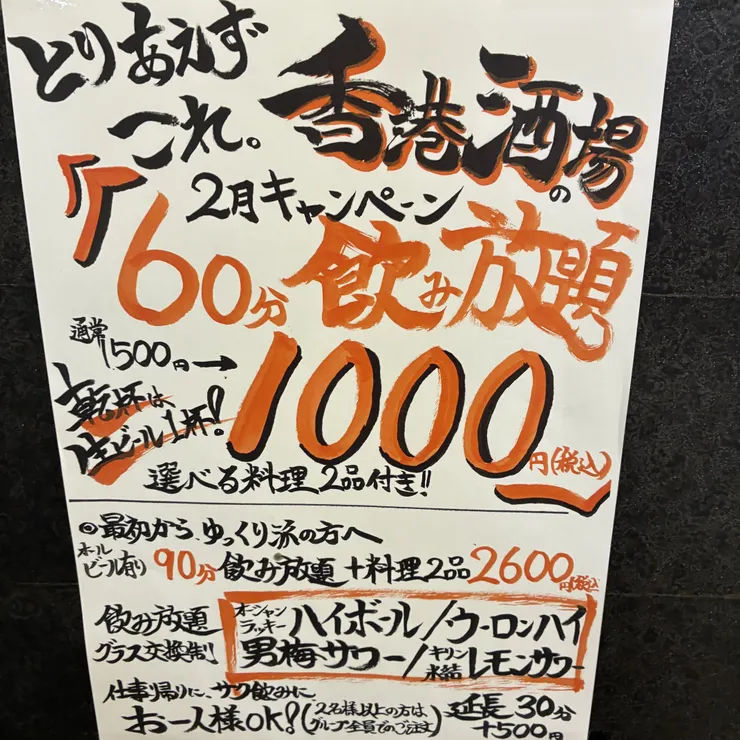 とりあえず
これ。
香港酒場の
2月キャンペーン
「60分飲み放題
通常1500円→1000円(税込)」
乾杯は
生ビール1杯!
選べる料理2品付き!!
◎最初から、ゆっくり派の方へ
ホールビール有り 90分飲み放題+料理2品2600円(税込)
飲み放題
グラス交換制
オーシャンラッキーハイボール/ウーロンハイ
男梅サワー/キリン氷結レモンサワー
仕事帰りに、サク飲みに
お一人様OK!(2名様以上の方はグループ全員でのご注文)
延長30分
+500円